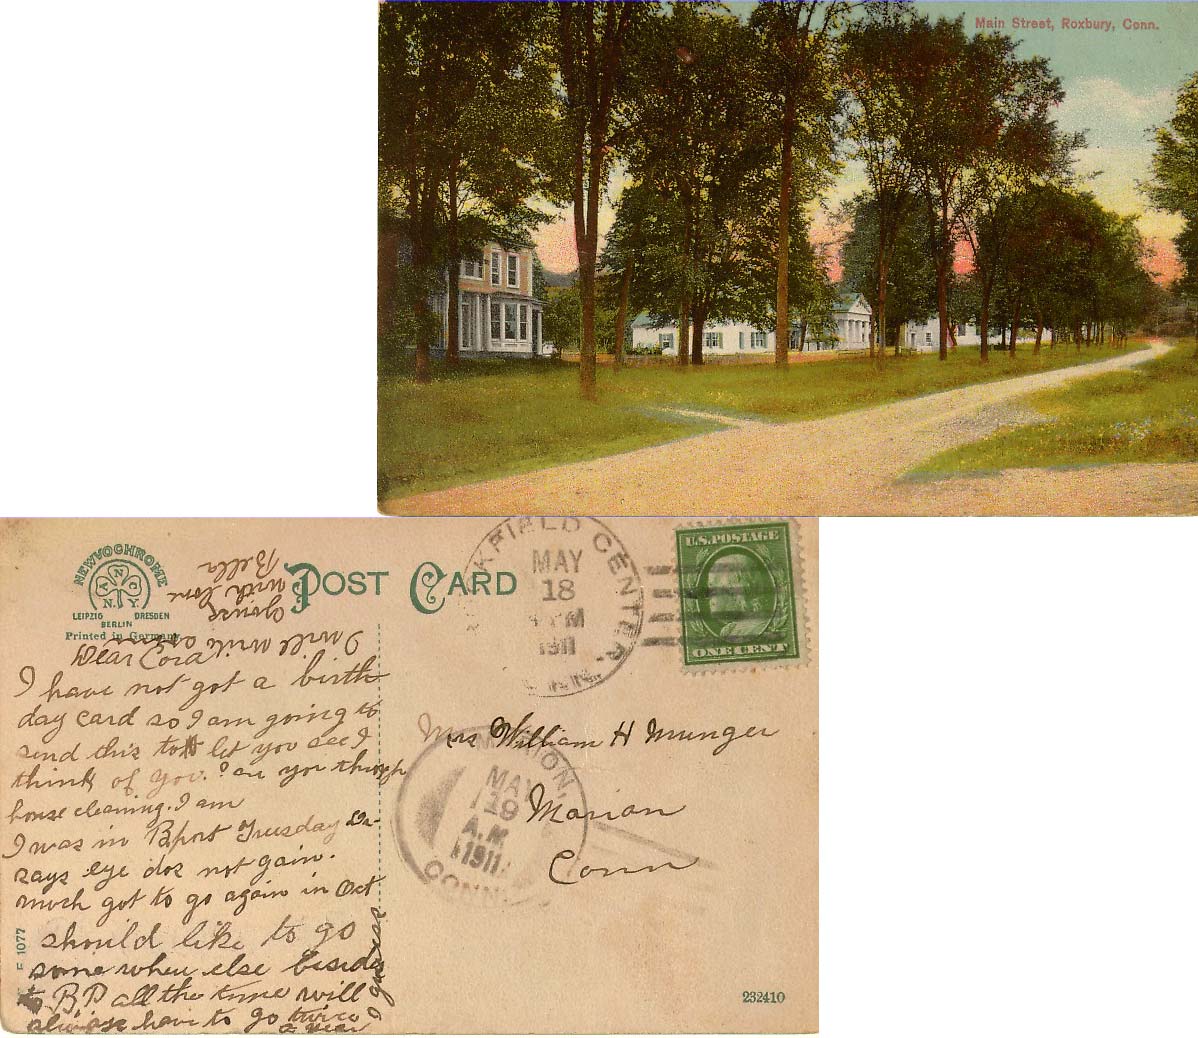 Main Street, Roxbury, Conn.
NEWVOCHROME
A N C
N.Y.
LEIPZIG DRESDEN
BERLIN
Printed in Germany
POST CARD
KFIELD CENTER.
MAY
18
PM
1911
U.S. POSTAGE
ONE CENT
Dear Cora
I have not got a birth
day card so I am going to
send this to let you see I
think of you. ? are you through
house cleaning. I am
I was in Bport Tuesday Dr
says eye dos not gain.
much got to go again in Oct
should like to go
some wher else besides
B.P all the time will
have to go twice
a year I guess
I will write
with love
Bella
MARION,
MAY
19
A.M
1911
CONN.
Mrs William H Munger
Marion
Conn
F 1077
232410